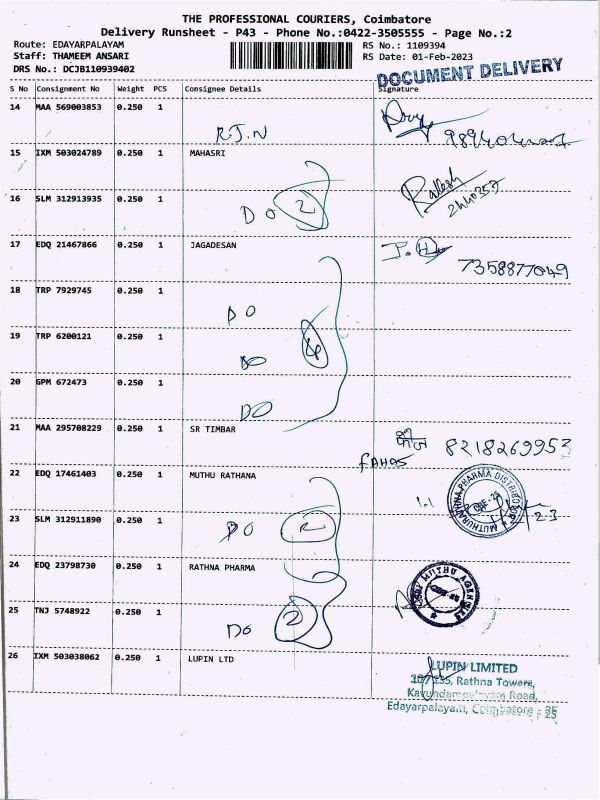 THE PROFESSIONAL COURIERS, Coimbatore
Delivery Runsheet - P43 - Phone No.:0422-3505555 - Page No.:2
Route: EDAYARPALAYAM RS No.: 1109394
Staff: THAMEEM ANSARI RS Date: 01-Feb-2023
DRS No.: DCJB110939402
DOCUMENT DELIVERY
S No Consignment No Weight PCS Consignee Details Signature
14 MAA 569003853 0.250 1
R.J.N
15 IXM 503024789 0.250 1 MAHASRI
Rakesh
16 SLM 312913935 0.250 1
DO 2
17 EDQ 21467866 0.250 1 JAGADESAN
7358877049
18 TRP 7929745 0.250 1
DO
19 TRP 6200121 0.250 1
DO 4
20 GPM 672473 0.250 1
DO
21 MAA 295708229 0.250 1 SR TIMBAR
8218269953
FAHAS
22 EDQ 17461403 0.250 1 MUTHU RATHANA
MUTHURATHNA PHARMA DISTRIBUTOR
23 SLM 312911890 0.250 1
DO 2
24 EDQ 23798730 0.250 1 RATHNA PHARMA
MUTHU AGENCIES
25 TNJ 5748922 0.250 1
DO 2
26 IXM 503038062 0.250 1 LUPIN LTD
LUPIN LIMITED
Rathna Towers,
Kavundampalayam Road,
Edayarpalayam, Coimbatore - 25